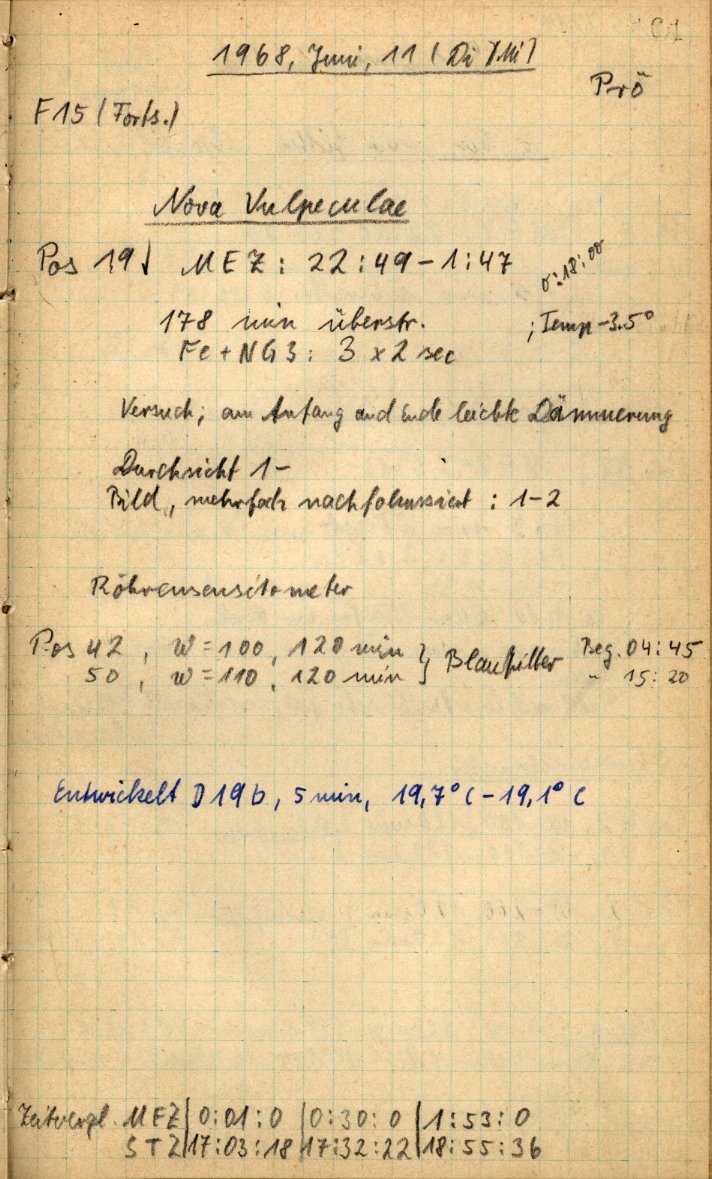 1968, Juni, 11 (Di/Mi)
Prö
F15 (Forts.)
Nova Vulpeculae
Pos 19↓ MEZ: 22:49-1:47
0:18:00
178 min überstr. ; Temp -3.5°
Fe+NG3: 3 x 2 sec
Versuch; am Anfang und Ende leichte Dämmerung
Durchsicht 1-
Bild, mehrfach nachfokussiert: 1-2
Röhrensensitometer
Pos 42, W=100, 120 min } Blaufilter Beg. 04:45
50, W=110, 120 min " 15:20
Entwickelt D19b, 5 min, 19,7°C-19,1°C
Zeitvergl. MEZ|0:01:0|0:30:0|1:53:0
STZ|17:03:18|17:32:22|18:55:36